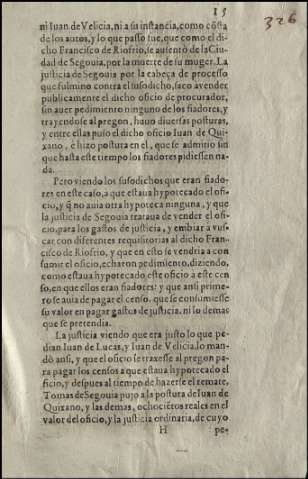 15
326
ni Iuan de Velicia, ni a su instãcia, como cõsta
de los autos, y lo que passó fue, que como el di-
cho Francisco de Riofrio, se ausentò de la Ciu-
dad de Segouia, por la muerte de su muger. La
justicia de Segouia por la cabeça de processo
que fulmino contra el susodicho, saco a vender
publicamente el dicho oficio de procurador,
sin auer pedimiento ninguno de los fiadores, y
trayendose al pregon, huuo diuersas posturas,
y entre ellas puso el dicho oficio Iuan de Qui-
xano, e hizo postura en el, que se admitio sin
que hasta este tiempo los fiadores pidiessen na-
da.
Pero viendo los susodichos que eran fiado-
res en este caso, a que estaua hypotecado el ofi-
cio, y q̃ no auia otra hypoteca ninguna, y que
la justicia de Segouia trataua de vender el ofi-
cio, para los gastos de justicia, y embiar a vus-
car con diferentes requisitorias al dicho Fran-
cisco de Riofrio, y que en esto se vendria a con
sumir el oficio, echaron pedimiento, diziendo,
como estaua hypotecado este oficio a este cen
so, en que ellos eran fiadores: y que ansi prime-
ro se auia de pagar el censo. que se consumiesse
su valor en pagar gastos de justicia, ni lo demas
que se pretendia.
La justicia viendo que era justo lo que pe-
dian Iuan de Lucas, y Iuan de Velicia, lo man-
dò ansi, y que el oficio se traxesse al pregon pa
ra pagar los censos a que estaua hypotecado el
oficio, y despues al tiempo de hazerse el remate,
Tomas de Segouia pujo a la postura de Iuan de
Quixano, y las demas, ochociẽtos reales en el
valor del oficio, y la justicia ordinaria, de cuyo
H pe-